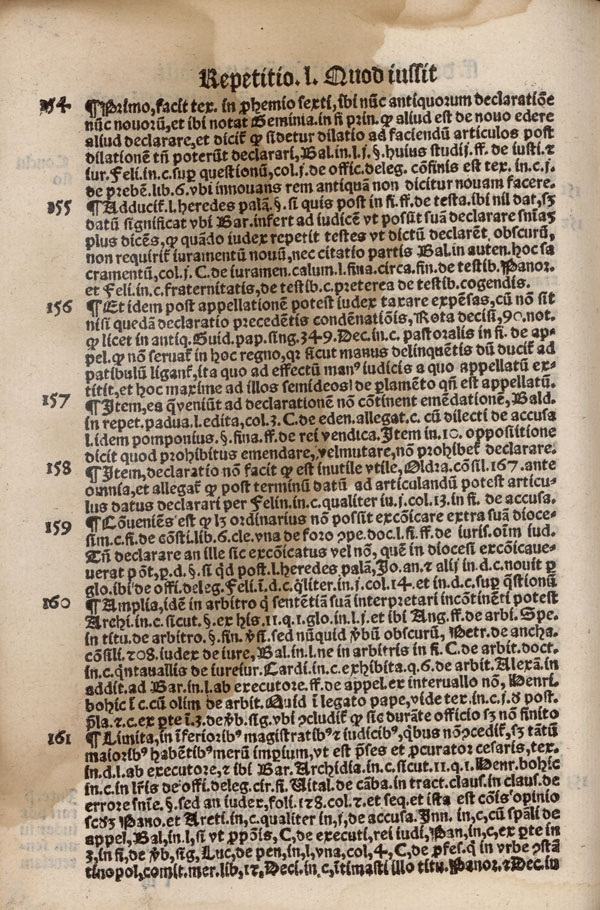 Repetitio. l. Quod iussit
154 ¶Primo, facit tex. in phemio sexti, ibi nūc antiquorum declaratiōe
nūc nouorū, et ibi notat Geminia. in fi prin. ꝙ aliud est de nouo edere
aliud declarare, et dicit̄ ꝙ si detur dilatio ad faciendū articulos post
dilationem tn̄ poterūt declarari, Bal. in. l. j. §. huius studij. ff. de iusti. ⁊
iur. Feli. in. c. sup̄ questionū, col. j. de offic. deleg. cōfinis est tex. in. c. j.
de prebēn. lib. 6. vbi innouans rem antiquā non dicitur nouam facere.
155 ¶Adducit̄. l. heredes palā. §. si quis post in fi. ff. de testa. ibi nil dat, sꝫ
datū significat vbi Bar. infert ad iudicē vt possit suā declarare sn̄iaꝫ
plus dicēs, ꝙ quādo iudex repetit testes vt dictū declarēt obscurū,
non requirit̄ iuramentū nouū, nec citatio partis Bal. in auten. hoc sa
cramentū, col. j. C. de iuramen. calum. l. fina. circa. fin. de testib. Panor.
et Feli. in. c. fraternitatis, de testib. c. preterea de testib. cogendis.
156 ¶Et idem post appellationē potest iudex taxare expēsas, cū nō sit
nisi quedā declaratio precedētis condēnatiōis, Rota decisi, 90. not.
ꝙ licet in antiq. Guid. pap. sing. 349. Dec. in. c. pastoralis in fi. de ap-
pel. ꝙ nō seruat̄ in hoc regno, qꝛ sicut manus delinquētis dū ducit̄ ad
patibulū ligant̄, ita quo ad effectū manꝰ iudicis a quo appellatū ex-
titit, et hoc maxime ad illos semideos de plamēto qn̄ est appellatū.
157 ¶Item, ea q̄ veniūt ad declarationē nō cōtinent emēdationē, Bald.
in repet. padua. l. edita, col. 3. C. de eden. allegat. c. cū dilecti de accusa
l. idem pomponius. §. fina. ff. de rei vendica. Item in. 10. oppositione
dicit quod prohibitus emendare, vel mutare, nō prohibet̄ declarare.
158 ¶Item, declaratio nō facit ꝙ est inutile vtile, Oldra. cōsil. 167. ante
omnia, et allegat̄ ꝙ post terminū datū ad articulandū potest articu-
lus datus declarari per Felin. in. c. qualiter iu. j. col. 13. in fi. de accusa.
159 ¶Cōueniēs est ꝙ lꝫ ordinarius nō possit excōicare extra suā dioce-
sim. c. fi. de cōsti. lib. 6. cle. vna de foro ꝯpe. doc. l. fi. ff. de iuris. oīm iud.
Tn̄ declarare an ille sic excōicatus vel nō, quē in diocesi excōicaue-
uerat p̄ ōt, p. d. §. si qd̄ post. l. heredes palā, Jo. an. ⁊ alij in. d. c. nouit p̄
glo. ibi de offi. deleg. Feli. ī. d. c. q̄liter. in. j. col. 14. et in. d. c. sup̄ q̄stionū
160 ¶Amplia, idē in arbitro q̄ sententiā suā interpretari incōtinēti potest
Archi. in. c. sicut. §. ex his. 11. q. 1. glo. in. l. j. et ibi Ang. ff. de arbi. Spe.
in titu. de arbitro. §. fin. sed nūquid v̄bū obscurū, Petr. de ancha.
cōsili. 208. iudex de iure, Bal. in. l. ne in arbitris in fi. C. de arbit. doct.
in. c. q̄ntauallis de iureiur. Cardi. in. c. exhibita. q. 6. de arbit. Alexā. in
addit. ad Bar. in. l. ab executore. ff. de appel. ex interuallo nō, Henri.
bohic ī. c. cū olim de arbit. Quid ī legato pape, vide tex. in. c. j. d̄ post.
p̄la. ⁊. c. ex p̄te ī. 3. de v̄b. sig. vbi ꝯcludit̄ ꝙ sic durāte officio sꝫ nō finito
161 ¶Limita, in īferiorībꝰ magistratibꝰ ⁊ iudicibꝰ, q̄bus nō ꝯcedit̄, sꝫ tātū
maioribꝰ habētibꝰ merū imperium, vt est p̄ses et p̄curator cesaris, tex.
in. d. l. ab executore, ⁊ ibi Bar. Archidia. in. c. sicut. 11. q. 1. Henr. bohic
in. c. in lr̄is de offi. deleg. cir. fi. Vital. de cāba. in tract. claus. in claus. de
errore sn̄ie. §. sed an iudex, foli. 178. col. 2. et seq. et ista est cōis opinio
scd̄ꝫ Pano. et Areti. in. c. qualiter in, j, de accusa. Inn. in, c, cū sp̄ali de
appel, Bal, in, l, si vt ꝓpōis, C, de executi, rei iudi, Pan, in, c, ex p̄te in
3, in fi, de v̄b, sig, Luc, de pen, in, l, vna, col, 4, C, de ꝓfes. q̄ in vrbe ꝯstā
tinopol, comit. mer. lib, 12, Deci. in. c, ītimasti illo titu. Panor. ⁊ Dec. in